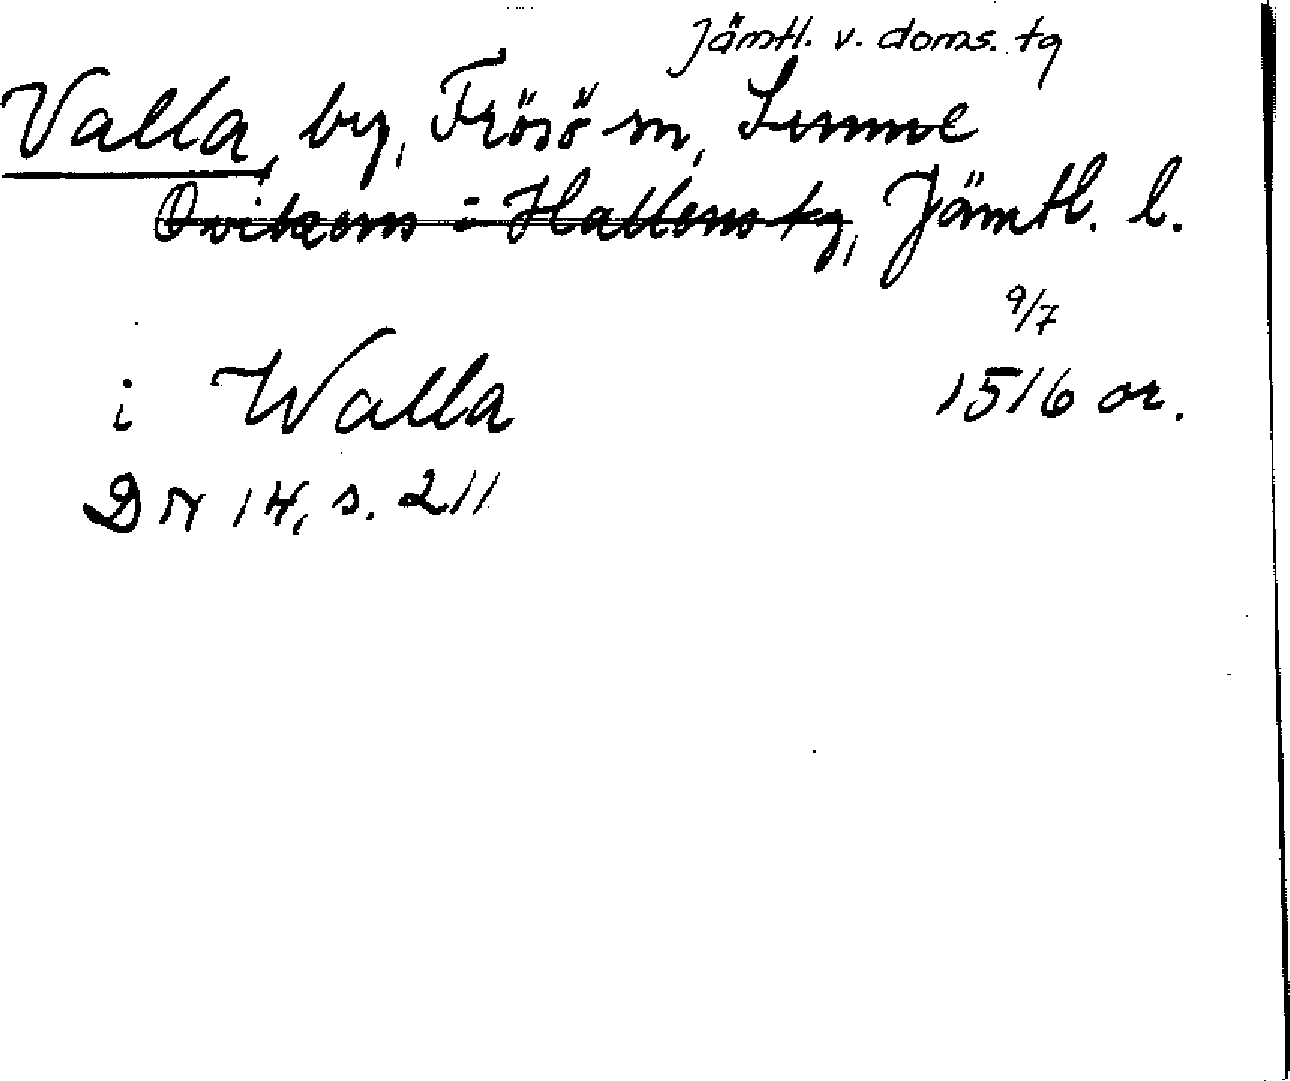 Jämtl. v. doms. tg
Valla, by, Frösö sn, Sunne
Ovikens o Hallens tg, Jämtl. l.
9/7
i Walla 1516 or.
DN 14, s. 211